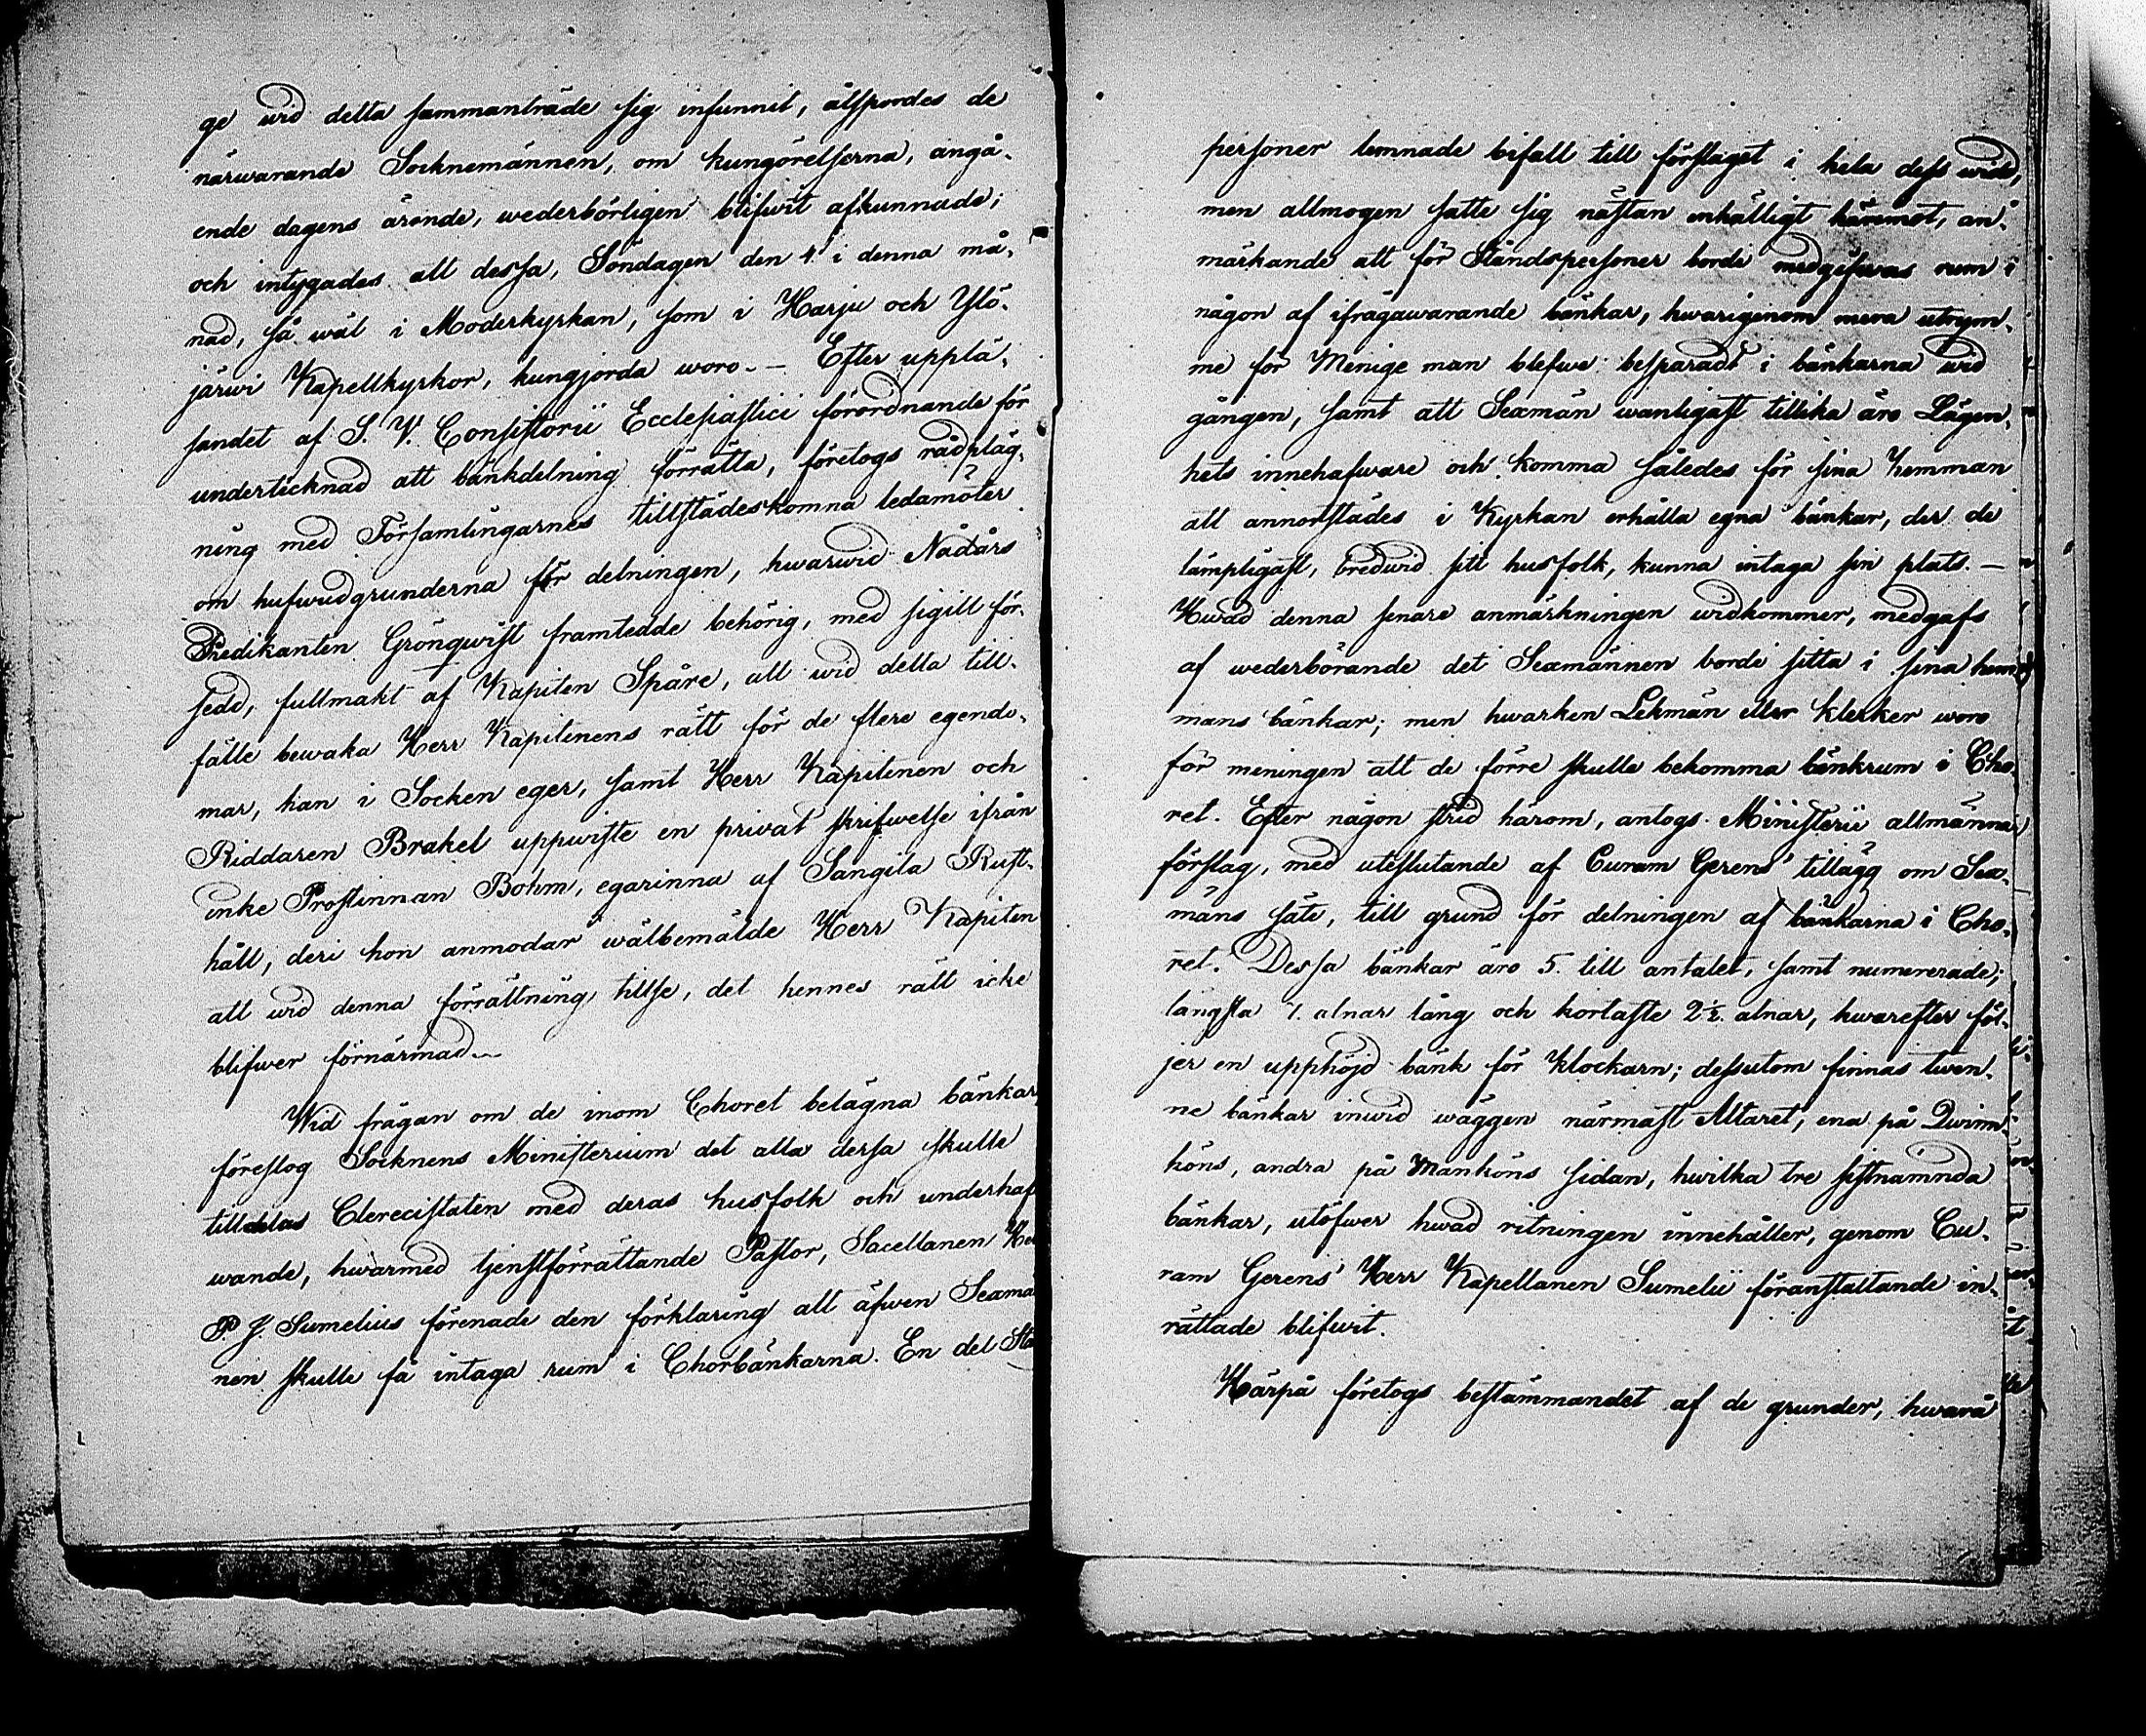 ge wid detta sammanträde sig infunnit, åtspordes de
närwarande Socknemännen, om kungörelserna, angå-
ende dagens ärende, wederbörligen blifwit afkunnade;
och intygades att dessa, Söndagen den 4 i denna må-
nad, så wäl i Moderkyrkan, som i Harju och Ylö-
järwi Kapellkyrkor, kungjorda woro. — Efter upplä-
sandet af S. V. Consistorii Ecclesiastici förordnande för
undertecknad att bänkdelning förrätta, företogs rådpläg-
ning med Församlingarnes tillstädeskomna ledamöter
om hufwudgrunderna för delningen, hwarwid Nådårs
Predikanten Grönqwist framtedde behörig, med sigill för-
sedd, fullmakt af Kapiten Spåre, att wid detta till-
fälle bewaka Herr Kapitenens rätt för de flere egendo-
mar, han i Socken eger, samt Herr Kapitenen och
Riddaren Brakel uppwiste en privat skrifwelse ifrån
enke Prostinnan Bohm, egarinna af Sangila Rust-
håll, deri hon anmodar wälbemälde Herr Kapiten
att wid denna förrättning tillse, det hennes rätt icke
blifwer förnärmad.—
Wid frågan om de inom Choret belägna bänkar,
föreslog Socknens Ministerium det alla dessa skulle
tilldelas Clerecistaten med deras husfolk och underhaf
wande, hwarmed tjenstförrättande Pastor, Sacellanen Her
P J. Sumelius förenade den förklaring att äfwen Sexmä
nen skulle få intaga rum i Chorbänkarna. En del Stå
personer lemnade bifall till förslaget i hela dess widd,
men allmogen satte sig nästan enhälligt häremot, an-
märkande att för Ståndspersoner borde medgifwas rum i
någon af ifrågawarande bänkar, hwarigenom mera utrym-
me för Menige man blefwe besparadt i bänkarna wid
gången, samt att Sexmän wanligast tillika äro Lägen-
hets innehafware och komma således för sina hemman
att annorstädes i Kyrkan erhålla egna bänkar, der de
lämpligast, bredwid sitt husfolk, kunna intaga sin plats. —
Hwad denna senare anmärkningen widkommer, medgafs
af wederbörande det Sexmännen borde sitta i sina hem-
mans bänkar; men hwarken Lekmän eller Klerker woro
för meningen att de förre skulle bekomma bänkrum i Cho-
ret. Efter någon strid härom, antogs Ministerii allmänna
förslag, med uteslutande af Curam Gerens' tillägg om Sex-
mäns säte, till grund för delningen af bänkarna i Cho-
ret. Dessa bänkar äro 5. till antalet, samt numererade;
längsta 7. alnar lång och kortaste 2½. alnar, hwarefter föl-
jer en upphöjd bänk för Klockarn; dessutom finnas twen-
ne bänkar inwid wäggen närmast Altaret, ena på Qwinn-
köns, andra på Manköns sidan, hwilka tre sistnämnda
bänkar, utöfwer hwad ritningen innehåller, genom Cu-
ram Gerens' Herr Kapellanen Sumelii föranstaltande in-
rättade blifwit.
Härpå företogs bestämmandet af de grunder, hwarå